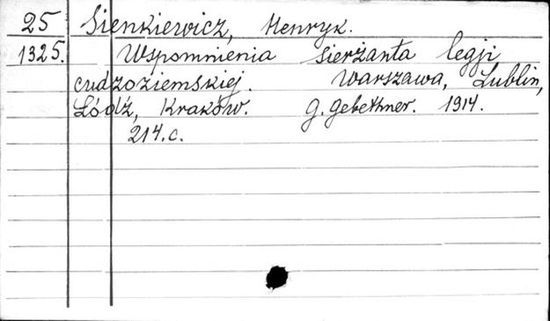 25 Sienkiewicz, Henryk.
1325. Wspomnienia sierżanta legji
cudzoziemskiej. Warszawa, Lublin,
Łódź, Kraków. G. Gebethner. 1914.
214.c.